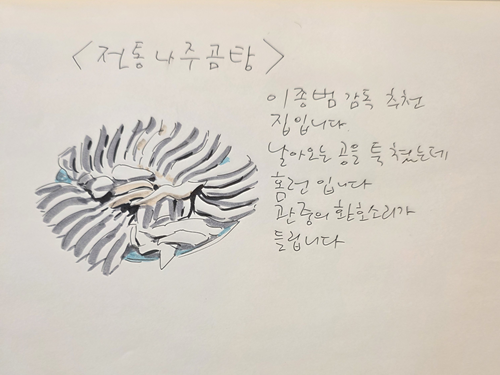 <전통나주곰탕>
이종범 감독 추천
집입니다.
날아오는 공을 툭 쳤는데
홈런 입니다
관중의 환호소리가
들립니다